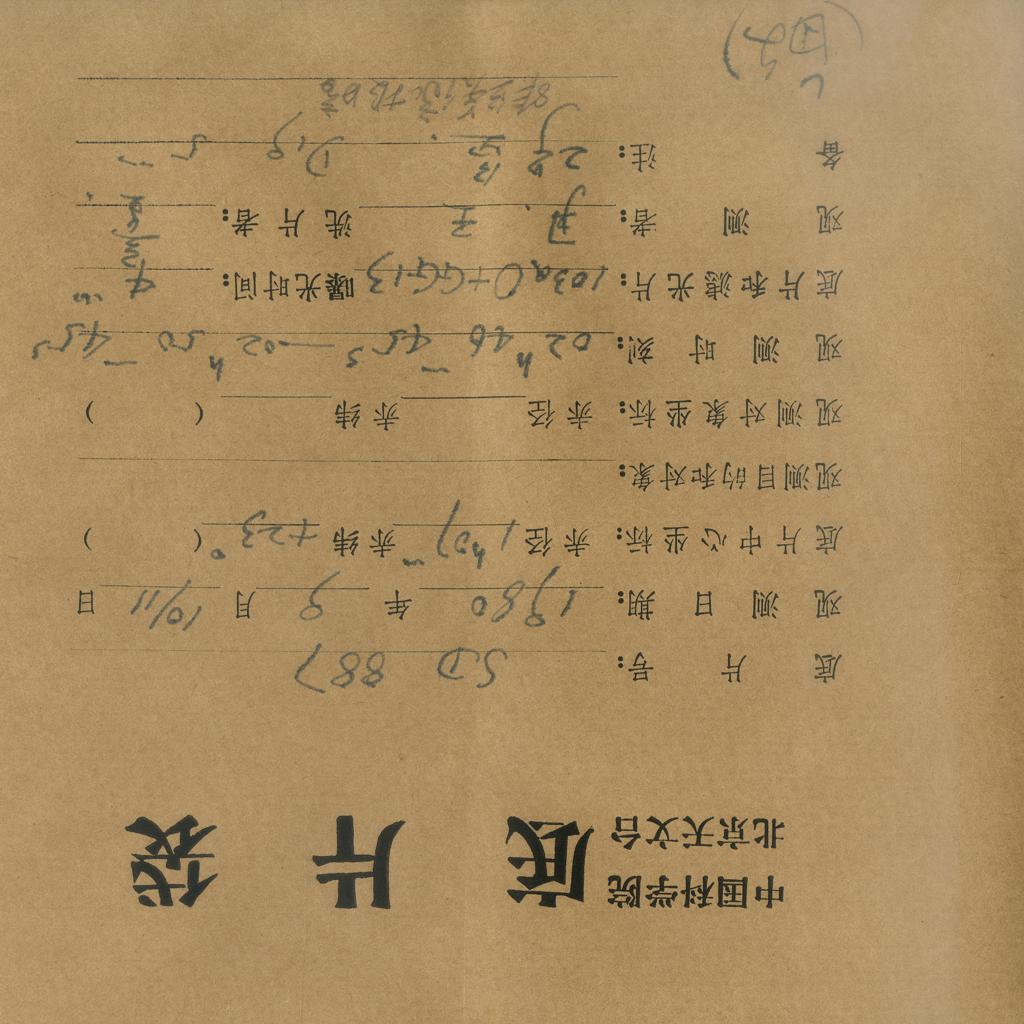 中国科学院
北京天文台
底片袋
底片号: SD 887
观测日期: 1980年 9月 10/11日
底片中心坐标: 赤径 1ʰ07ᵐ 赤纬 +23° ( )
观测目的和对象:
观测对象坐标: 赤径 赤纬 ( )
观测时刻: 02ʰ46ᵐ45ˢ—02ʰ50ᵐ45ˢ
底片和滤光片: 103aO+GG13 曝光时间: 4ᵐ
观测者: 王 洗片者:
备注: D19 5ᵐ